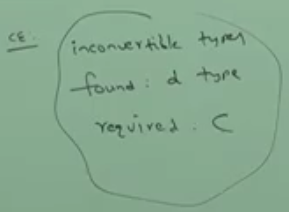 CE:
inconvertible types
found: d type
required: C